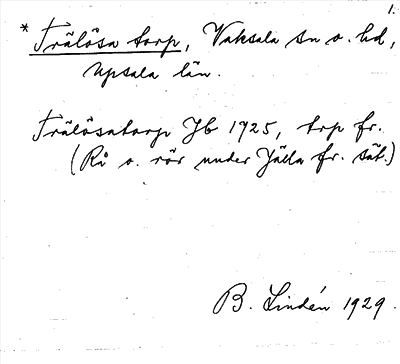 1.
* Trälösa torp, Vaksala sn o. hd,
Upsala län.
Trälösatorp Jb 1925, trp fr.
(Rå o. rör under Jälla fr. sät.)
B. Lindén 1929.